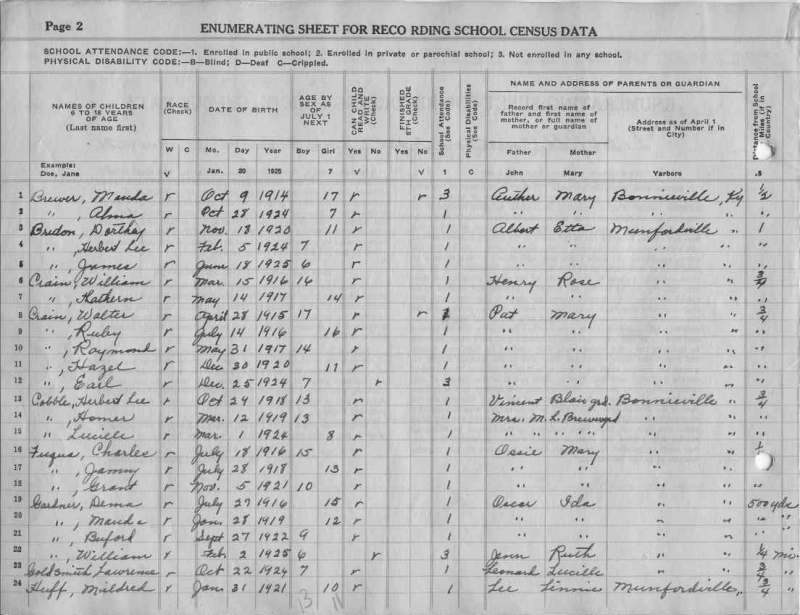 Page 2
ENUMERATING SHEET FOR RECO RDING SCHOOL CENSUS DATA
SCHOOL ATTENDANCE CODE:—1. Enrolled in public school; 2. Enrolled in private or parochial school; 3. Not enrolled in any school.
PHYSICAL DISABILITY CODE:—B—Blind; D—Deaf C—Crippled.
NAMES OF CHILDREN 6 TO 18 YEARS OF AGE (Last name first) RACE (Check) DATE OF BIRTH AGE BY SEX AS OF JULY 1 NEXT CAN CHILD READ AND WRITE (Check) FINISHED 8TH GRADE (Check) School Attendance (See Code) Physical Disabilities (See Code) NAME AND ADDRESS OF PARENTS OR GUARDIAN
Record first name of father and first name of mother, or full name of mother or guardian Address as of April 1 (Street and Number if in City) from School Miles (if in Country)
W C Mo. Day Year Boy Girl Yes No Yes No Father Mother
Example: Doe, Jane V Jan. 20 1925 7 V V 1 C John Mary Yarboro .5
1 Brewer, Manda r Oct 9 1914 17 r r 3 Auther Mary Bonnieville, Ky 1/2
2 ", Alma r Oct 28 1924 7 r 1 " " " " "
3 Bredon, Dorthay r Nov. 18 1920 11 r 1 Albert Etta Munfordville " 1
4 ", Herbert Lee r Feb. 5 1924 7 r 1 " " " " "
5 ", James r June 18 1925 6 r 1 " " " " "
6 Crain, William r Mar. 15 1916 14 r 1 Henry Rose " " 3/4
7 ", Kathern r May 14 1917 14 r 1 " " " " "
8 Crain, Walter r April 28 1915 17 r 1 Pat Mary " " 3/4
9 ", Ruby r July 14 1916 16 r 1 " " " " "
10 ", Raymond r May 31 1917 14 r 1 " " " " "
11 ", Hazel r Dec 30 1920 11 r 1 " " " " "
12 ", Earl r Dec. 25 1924 7 r 3 " " " " "
13 Cobble, Herbert Lee r Oct 24 1918 13 r 1 Vincent Blair grd. Bonnieville " 3/4
14 ", Homer r Mar. 12 1919 13 r 1 Mrs. M. L. Brewer grd " " "
15 " Lucille r Mar. 1 1924 8 r 1 " " " " " "
16 Fuqua, Charles r July 18 1916 15 r 1 Ossie Mary " "
17 ", Jammy r July 28 1918 13 r 1 " " " " "
18 ", Grant r Nov. 5 1921 10 r 1 " " " " "
19 Gardner, Dema r July 27 1916 15 r 1 Oscar Ida " " 500 yds
20 ", Manda r Jan. 28 1919 12 r 1 " " " " " "
21 ", Buford r Sept 27 1922 9 r 1 " " " " " "
22 ", William r Feb. 2 1925 6 r 3 Ruth " " 1/4 mi.
23 Goldsmith Lawrence r Oct 22 1924 7 r 1 Leonard Lucille " " 3/4 "
24 Huff, Mildred r Jan. 31 1921 10 r 1 Lee Linnie Munfordville, " 3/4 "
3 11